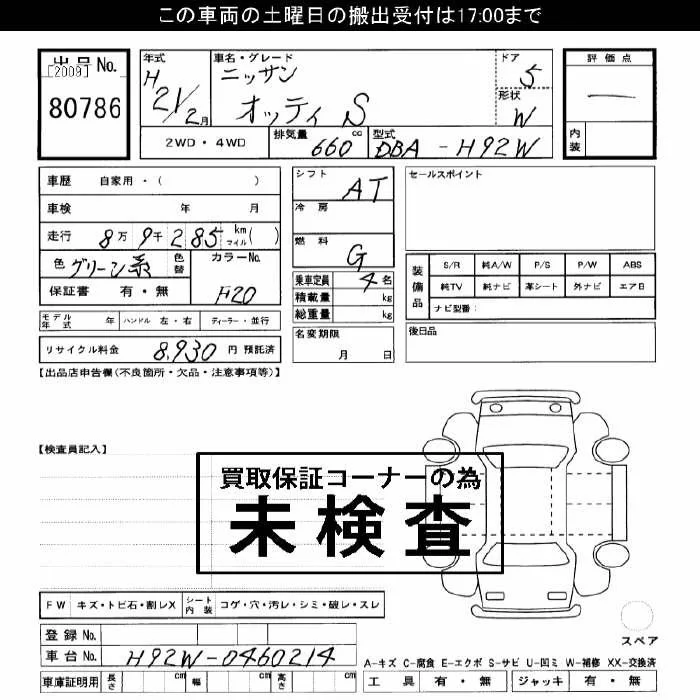 この車両の土曜日の搬出受付は17:00まで
出品No.
[2009]
80786
年式
H
21/2月
車名・グレード
ニッサン
オッティ S
ドア
5
形状
W
評価点
一
内装
2WD・4WD
排気量 660 cc
型式 DBA-H92W
車歴 自家用・( )
車検 年 月
走行 8万9千285 km マイル( )
色 グリーン系 色替 カラーNo. H20
保証書 有・無
モデル年式 年 ハンドル 左・右 ディーラー・並行
リサイクル料金 8,930 円 預託済
シフト AT
冷房
燃料 G
乗車定員 4名
積載量 kg
総重量 kg
名変期限
月 日
セールスポイント
装備品
S/R 純A/W P/S P/W ABS
純TV 純ナビ 革シート 外ナビ エアB
ナビ型番:
後日品
【出品店申告欄(不良箇所・欠品・注意事項等)】
【検査員記入】
買取保証コーナーの為
未検査
FW キズ・トビ石・割レX シート内装 コゲ・穴・汚レ・シミ・破レ・スレ
登録No.
車台No. H92W-0460214
車庫証明用 長さ cm 幅 cm 高さ cm
スペア
A-キズ C-腐食 E-エクボ S-サビ U-凹ミ W-補修 XX-交換済
工具 有・無 ジャッキ 有・無